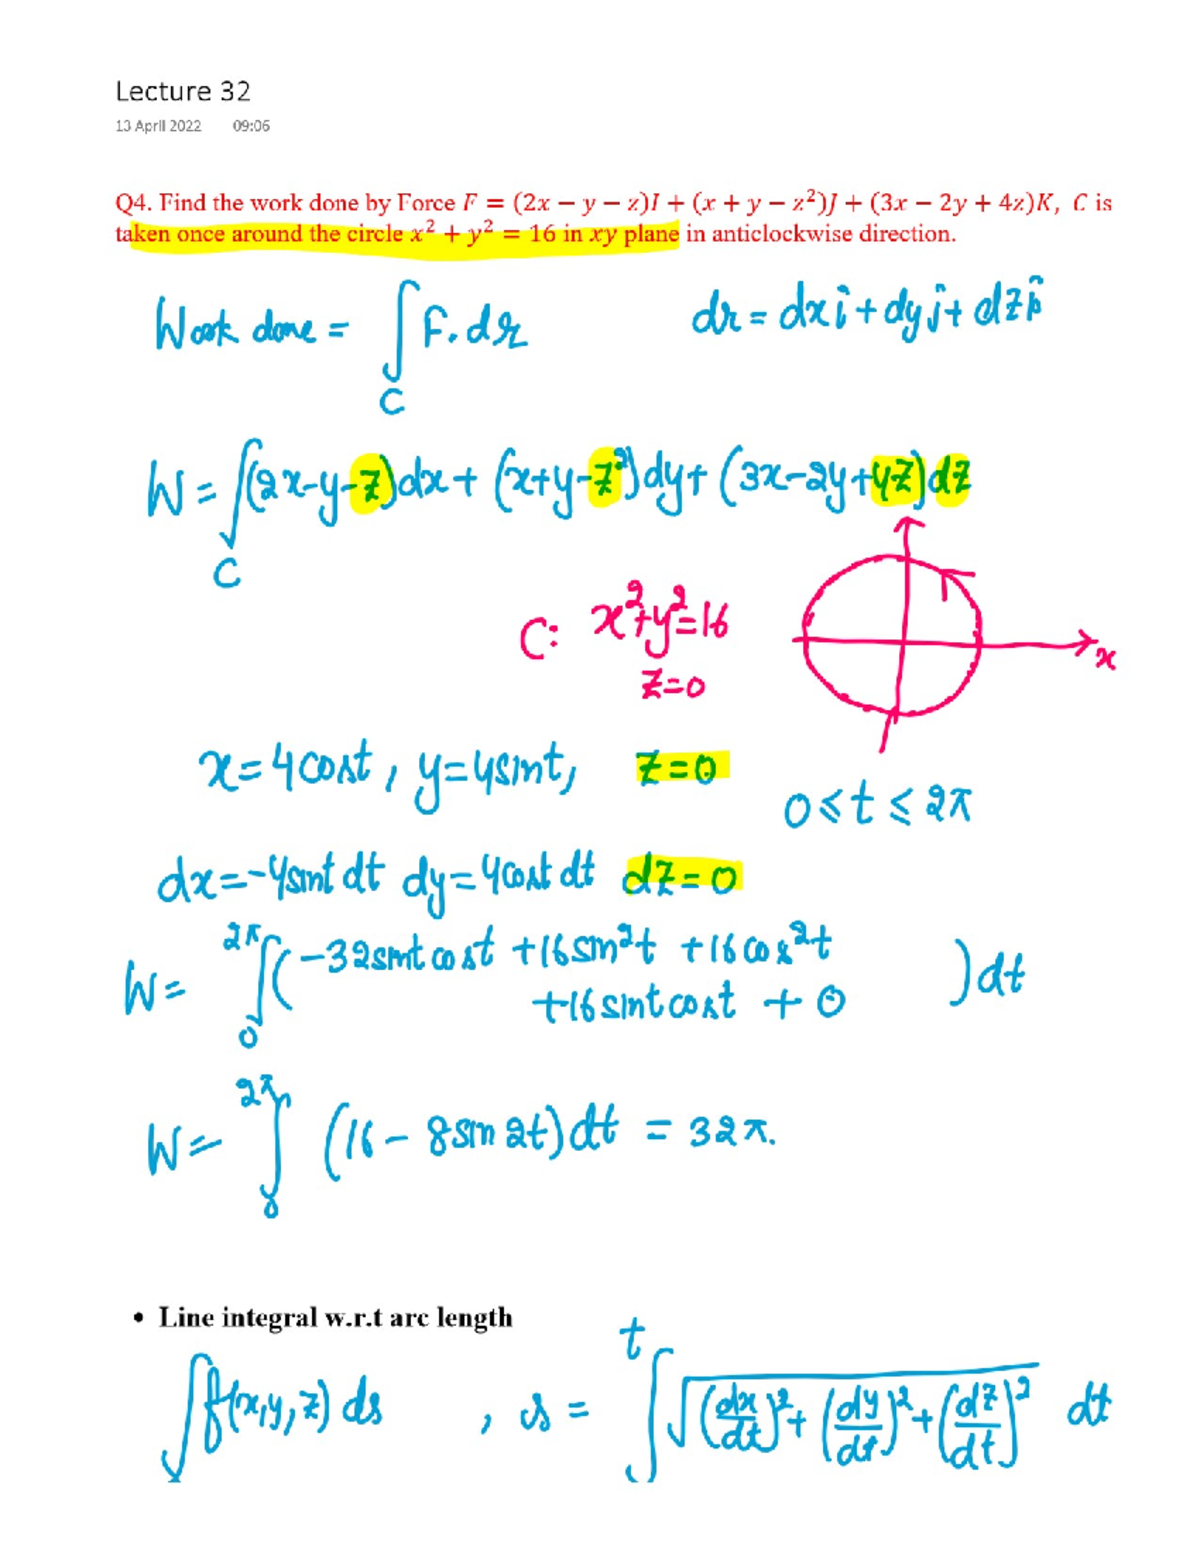 Lecture 32
13 April 2022 09:06
Q4. Find the work done by Force F = (2x − y − z)I + (x + y − z²)J + (3x − 2y + 4z)K, C is
taken once around the circle x² + y² = 16 in xy plane in anticlockwise direction.
Work done = ∫_C F.dr dr = dx î + dy ĵ + dz k̂
W = ∫_C (2x-y-z)dx + (x+y-z²)dy + (3x-2y+4z)dz
C: x²+y²=16
z=0
x
x=4cost, y=4sint, z=0
0≤t≤2π
dx=-4sint dt dy=4cost dt dz=0
W= ∫_0^{2π} (-32sint cost +16sin²t +16cos²t
+16sint cost + 0 )dt
W= ∫_0^{2π} (16-8sin2t)dt = 32π.
• Line integral w.r.t arc length
∫f(x,y,z) ds , s = ∫^t √((dx/dt)²+(dy/dt)²+(dz/dt)²) dt